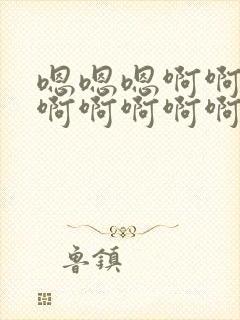 嗯嗯嗯啊啊
啊啊啊啊啊
鲁鎮